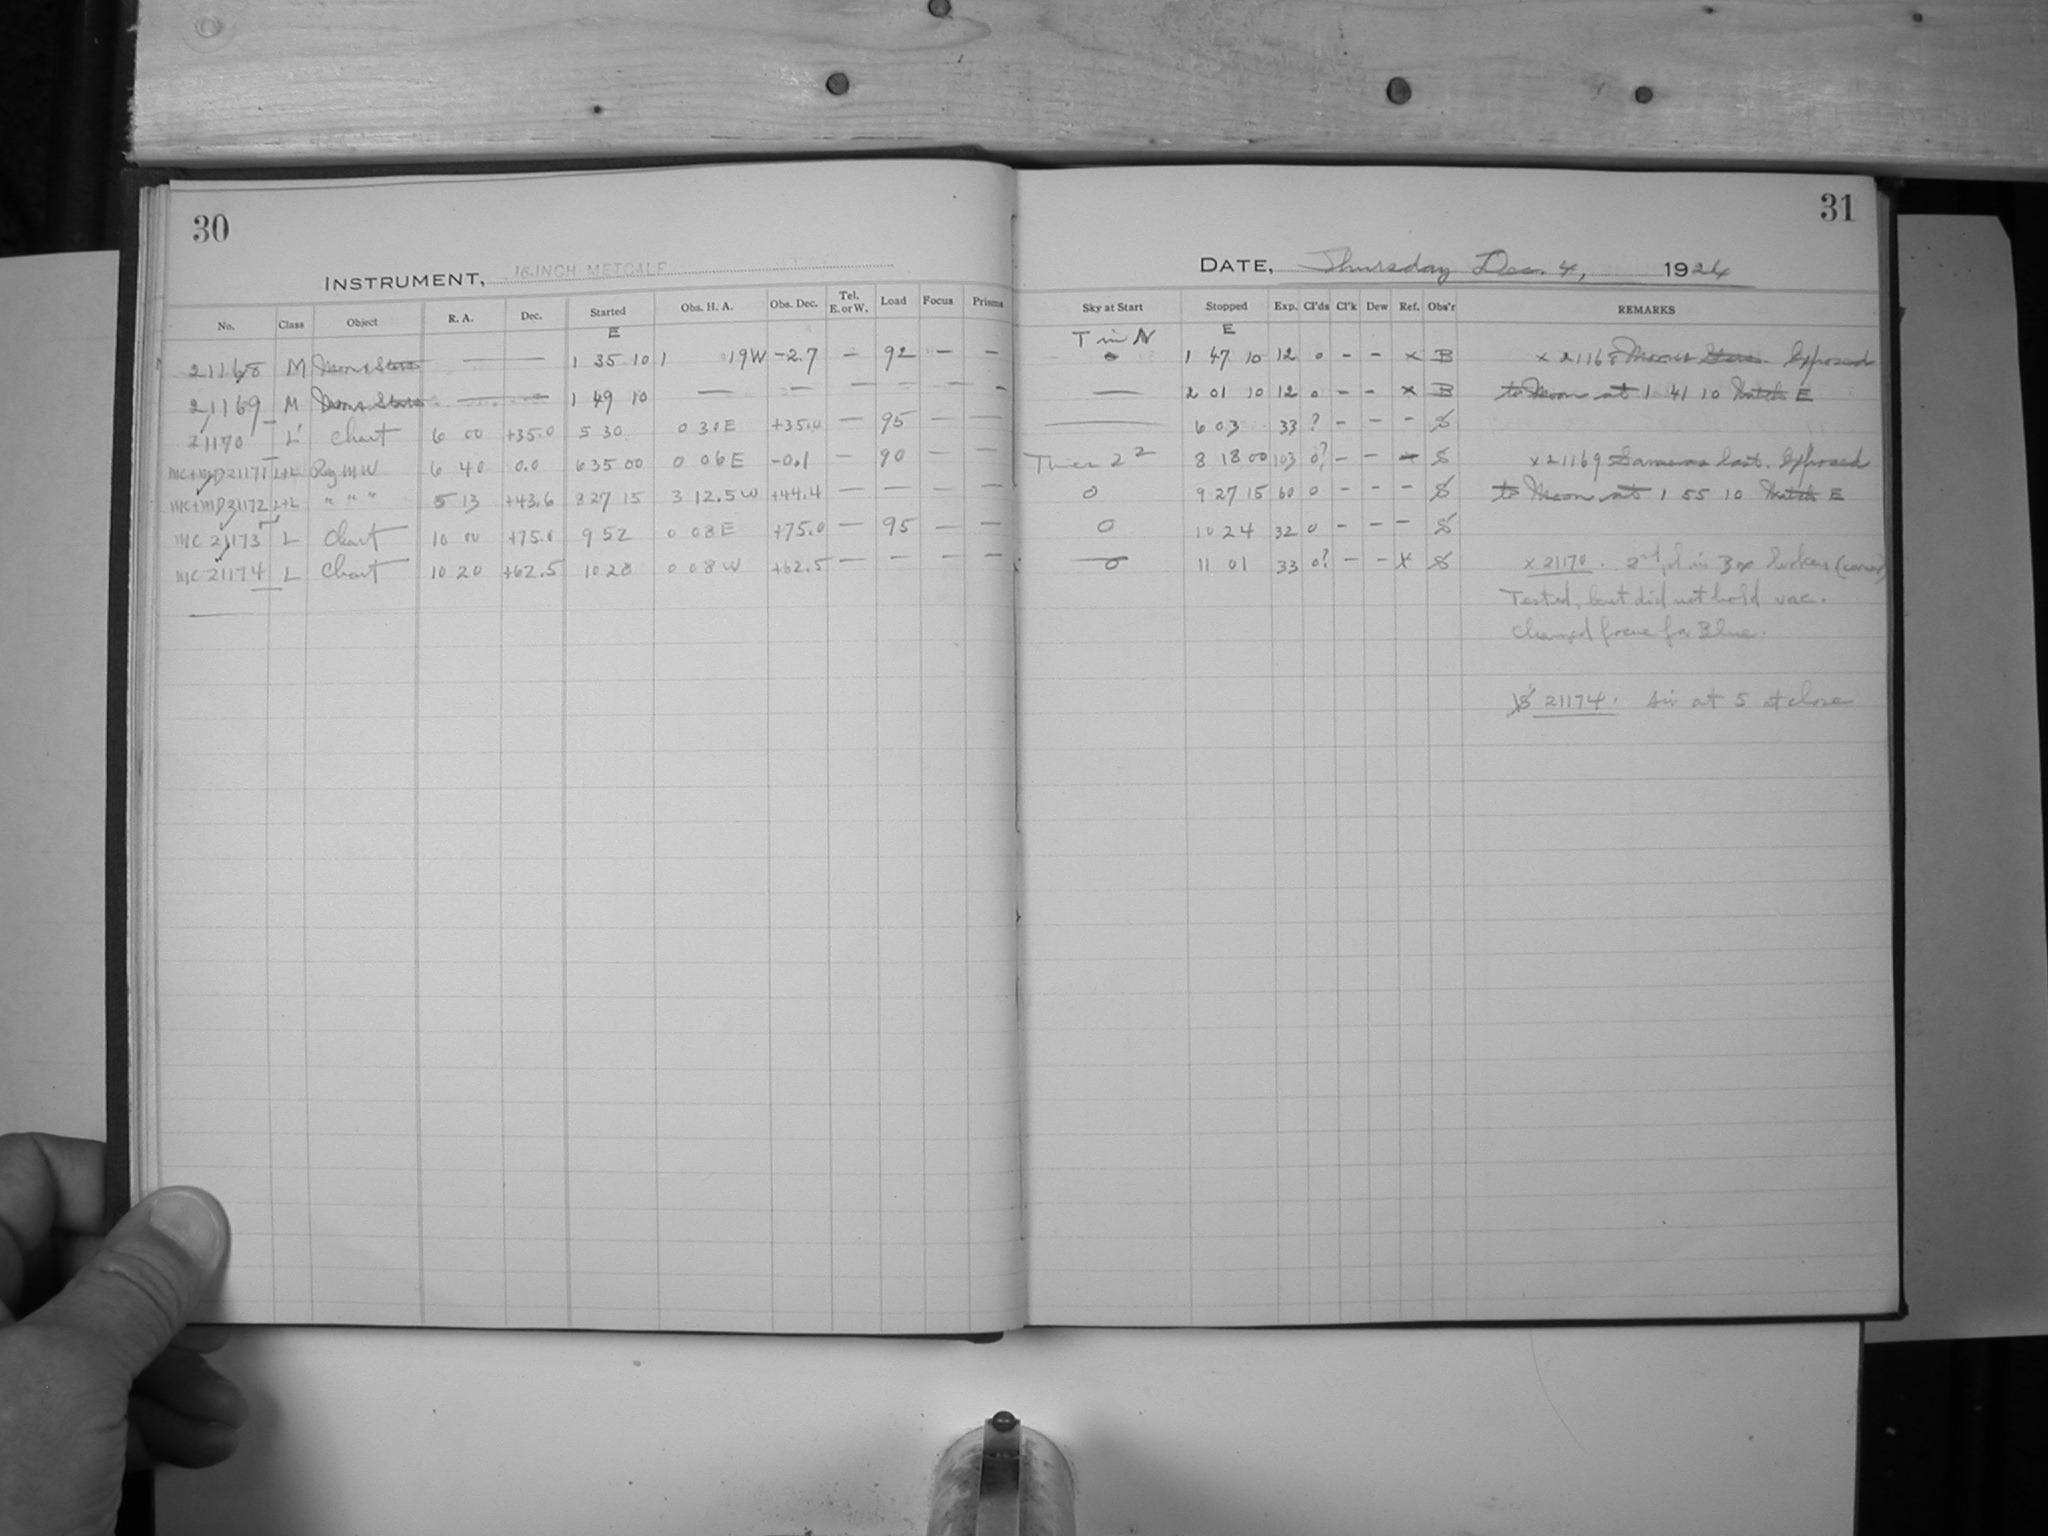 30
INSTRUMENT, 16-INCH METCALF
No. Class Object R. A. Dec. Started Obs. H. A. Obs. Dec. Tel. E. or W. Load Focus Prisms
E
21168 M Moon & Stars — — 1 35 10 1 19W -2.7 — 92 — —
21169 M Moon & Stars — — 1 49 10 — — — — — —
21170 L Chart 6 00 +35.0 5 30 0 30E +35.0 — 95 — —
MC+MD21171 L+L Reg MW 6 40 0.0 6 35 00 0 06E -0.1 — 90 — —
MC+MD21172 L+L " " " 5 13 +43.6 8 27 15 3 12.5W +44.4 — — — —
MC 21173 L Chart 10 00 +75.0 9 52 0 08E +75.0 — 95 — —
MC 21174 L Chart 10 20 +62.5 10 28 0 08W +62.5 — — — —
31
DATE, Thursday Dec. 4, 1924
Sky at Start Stopped Exp. Cl'ds Cl'k Dew Ref. Obs'r REMARKS
T in N E
o 1 47 10 12 o - - x B x 21168 Moon & Stars. Exposed
— 2 01 10 12 o - - x B to Moon at 1 41 10 Watch E
— 6 03 33 ? - - - S
8 18 00 103 o? - - x S x 21169 Same as last. Exposed
o 9 27 15 60 o - - - S to Moon at 1 55 10 Watch E
o 10 24 32 o - - - S
o 11 01 33 o? - - x S x 21170. 2nd pl in Box broken (corner)
Tested, but did not hold vac.
Changed focus for Blue.
21174. at 5 at close